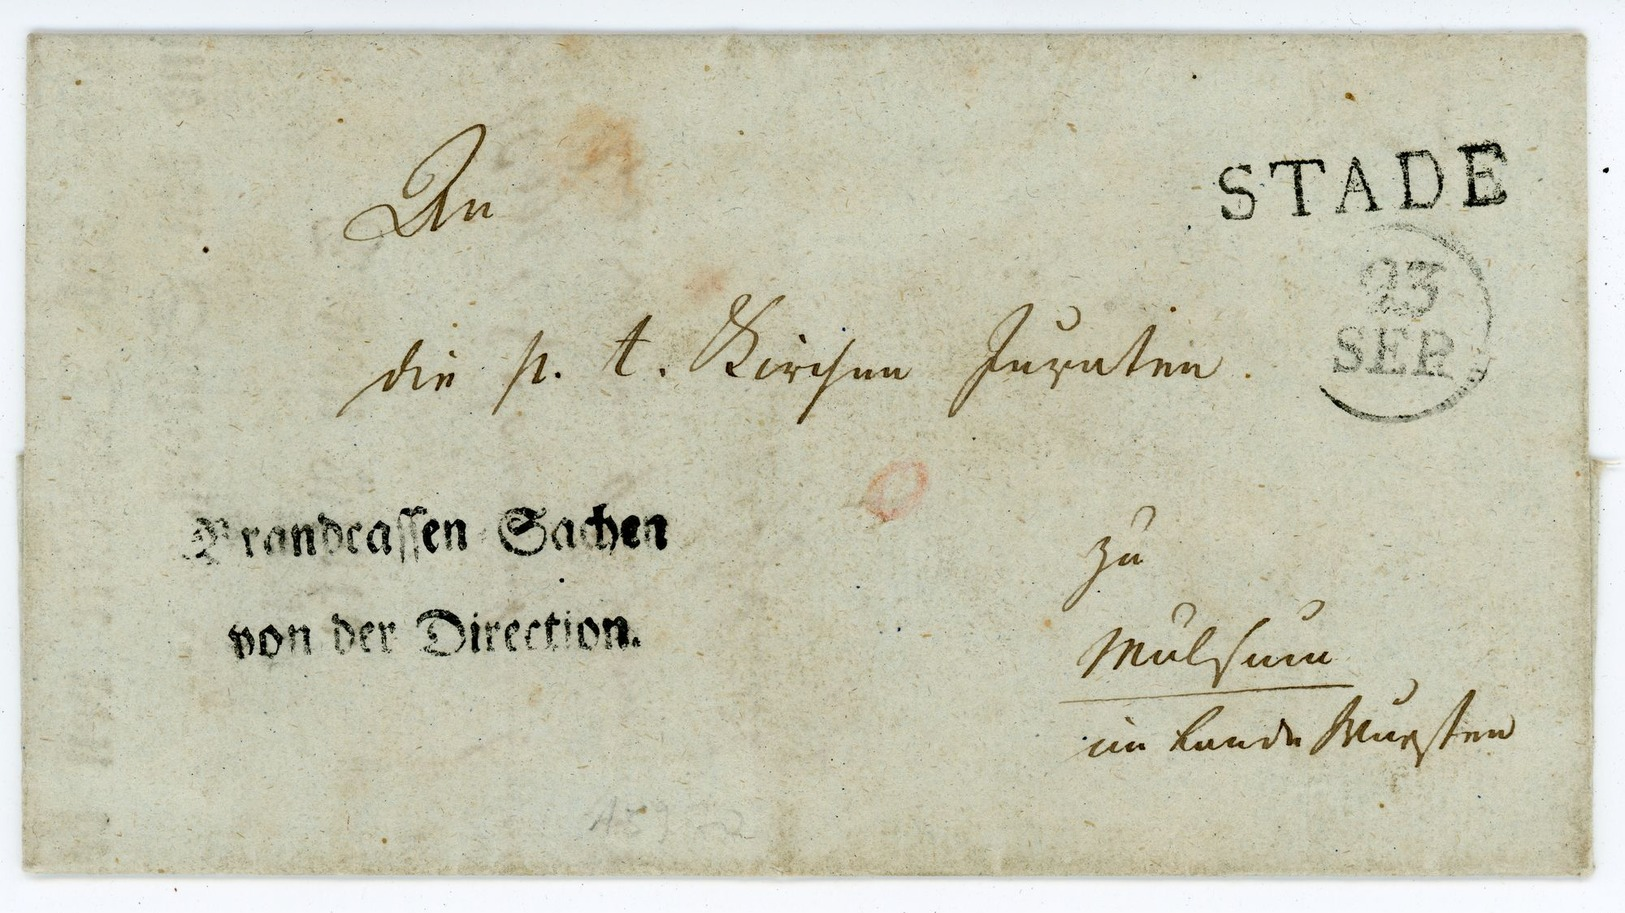 An
STADE
23
SEP.
die p. t. Kirchen Juraten.
Brandcassen-Sachen
von der Direction.
zu
Mulsum
im Lande Wursten